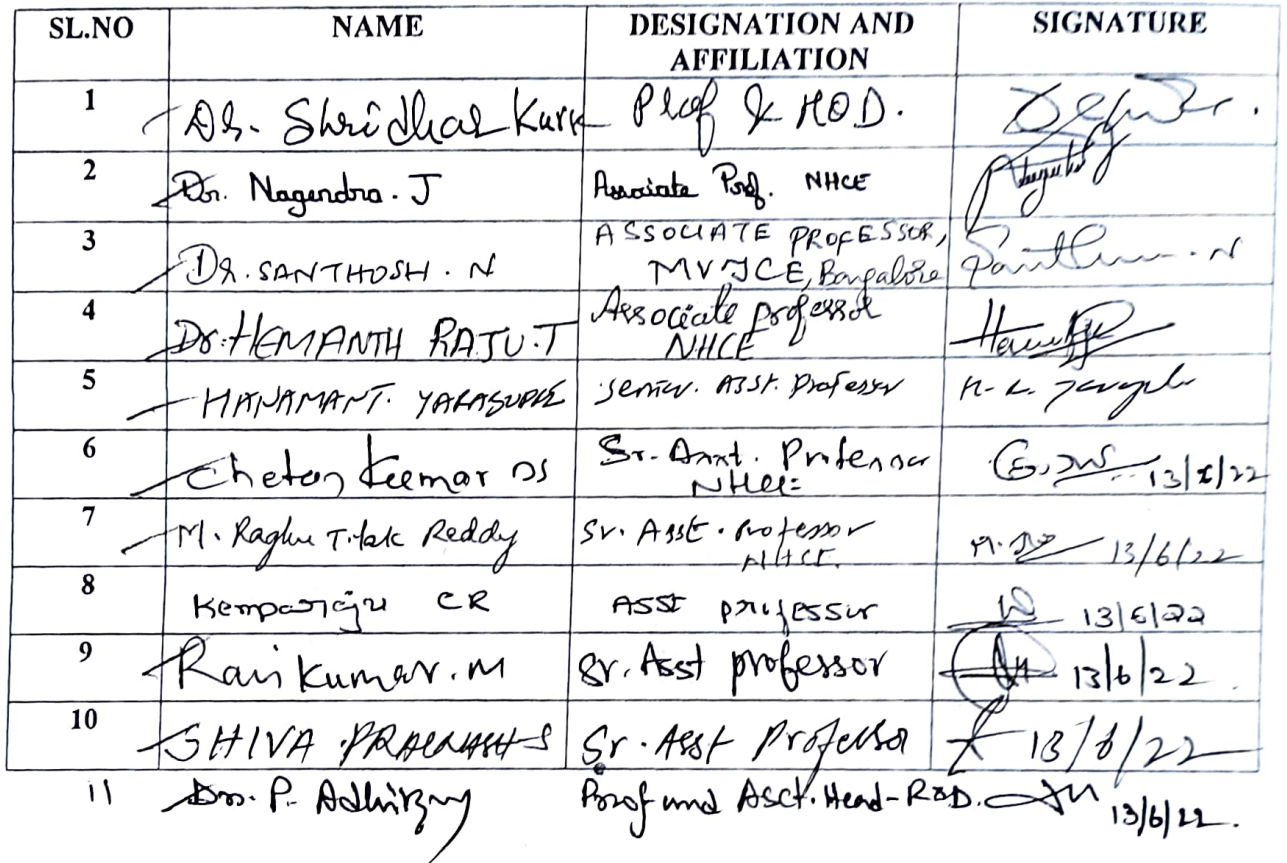 SL.NO NAME DESIGNATION AND AFFILIATION SIGNATURE
1 Dr. Shridhar Kurk Prof & HOD.
2 Dr. Nagendra. J Associate Prof. NHCE
3 Dr. SANTHOSH. N ASSOCIATE PROFESSOR,
MVJCE, Bangalore Santhosh. N
4 Dr. HEMANTH RAJU. T Associate professor
NHCE
5 HANAMANT. YARAGUDRE Senior. Asst. Professor
6 Chetan Kumar DS Sr. Asst. Professor
NHCE 13/6/22
7 M. Raghu Tilak Reddy Sr. Asst. Professor
NHCE. 13/6/22
8 Kemparaju CR ASST professor 13/6/22
9 Ravikumar. M Sr. Asst professor 13/6/22.
10 SHIVA PRAKASH S Sr. Asst Professor 13/6/22
11 Dr. P. Prof and Asct. Head-R&D. 13/6/22.